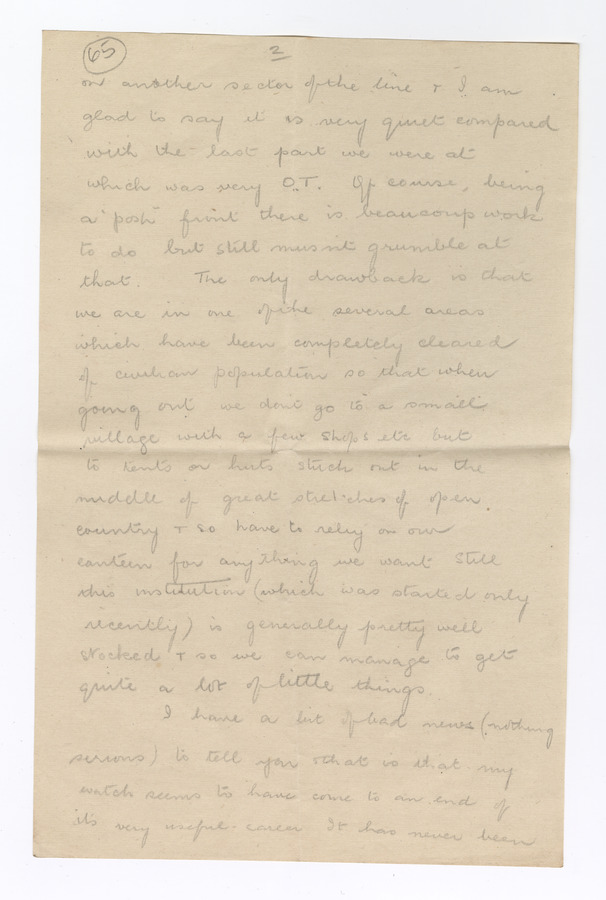 65
2
on another sector of the line + I am
glad to say it is very quiet compared
with the last part we were at
which was very O.T. Of course, being
a "posh" front there is beaucoup work
to do but still musnt grumble at
that. The only drawback is that
we are in one of the several areas
which have been completely cleared
of civilian population so that when
going out we dont go to a small
village with a few shops etc but
to tents or huts stuck out in the
middle of great stretches of open
country + so have to rely on our
canteen for anything we want Still
this institution (which was started only
recently) is generally pretty well
stocked + so we can manage to get
quite a lot of little things.
I have a bit of bad news (nothing
serious) to tell you & that is that my
watch seems to have come to an end of
it's very useful career It has never been